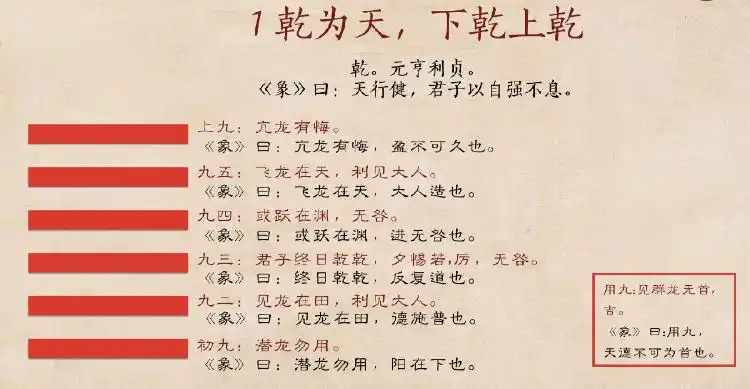 1 乾为天，下乾上乾
乾。元亨利贞。
《象》曰：天行健，君子以自强不息。
上九：亢龙有悔。
《象》曰：亢龙有悔，盈不可久也。
九五：飞龙在天，利见大人。
《象》曰：飞龙在天，大人造也。
九四：或跃在渊，无咎。
《象》曰：或跃在渊，进无咎也。
九三：君子终日乾乾，夕惕若,厉，无咎。
《象》曰：终日乾乾，反复道也。
九二：见龙在田，利见大人。
《象》曰：见龙在田，德施普也。
初九：潜龙勿用。
《象》曰：潜龙勿用，阳在下也。
用九:见群龙无首，
吉。
《象》曰:用九，
天德不可为首也。